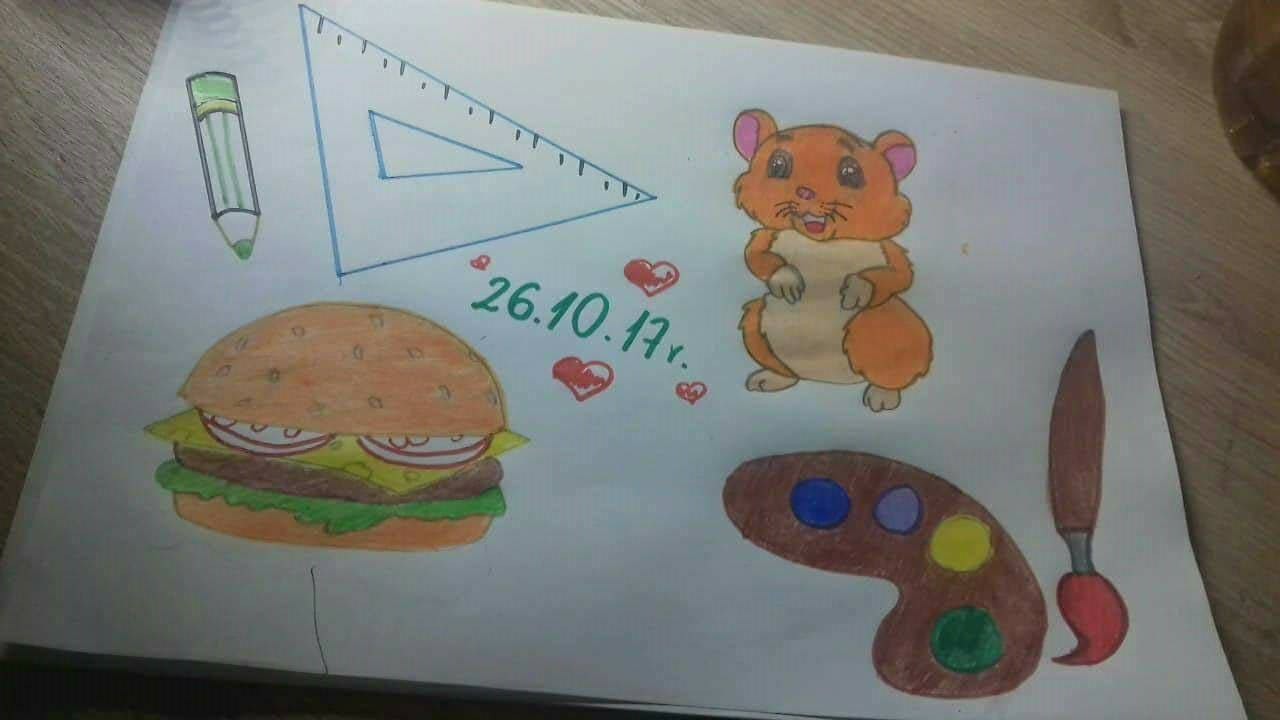 26.10.17г.